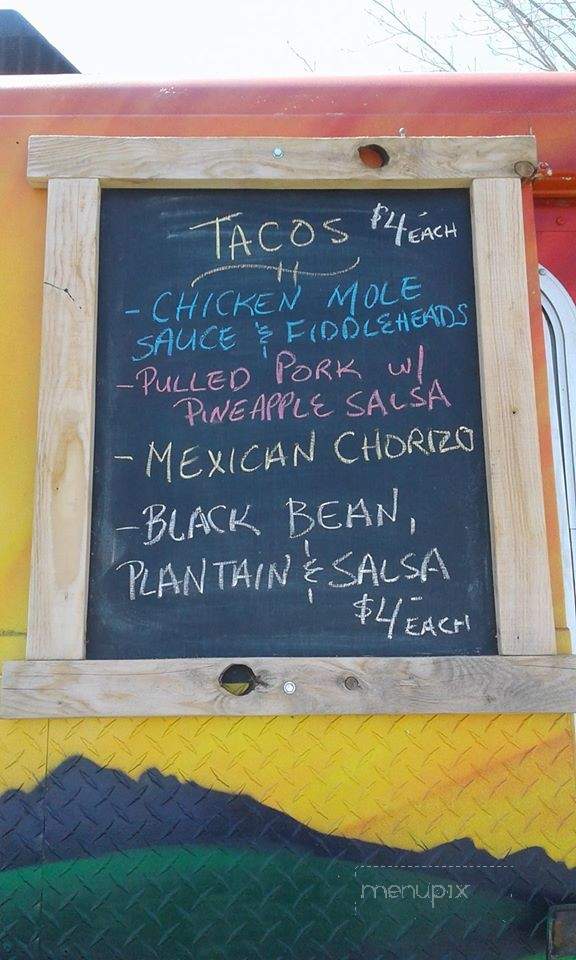 TACOS $4- EACH
- CHICKEN MOLE
SAUCE & FIDDLEHEADS
- PULLED PORK W/
PINEAPPLE SALSA
- MEXICAN CHORIZO
- BLACK BEAN,
PLANTAIN & SALSA
$4- EACH
menupix